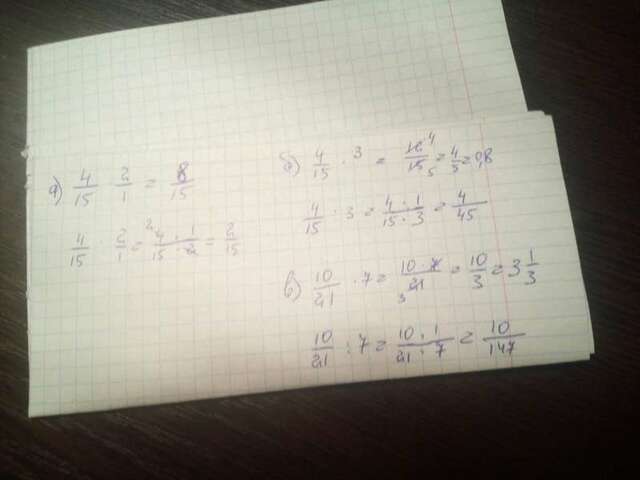 а) 4/15 · 2/1 = 8/15
4/15 : 2/1 = ²4 · 1/15 · 2 = 2/15
б) 4/15 · 3 = 12⁴/15₅ = 4/5 = 0,8
4/15 : 3 = 4 · 1/15 · 3 = 4/45
в) 10/21 · 7 = 10 · 7/₃21 = 10/3 = 3 1/3
10/21 : 7 = 10 · 1/21 · 7 = 10/147